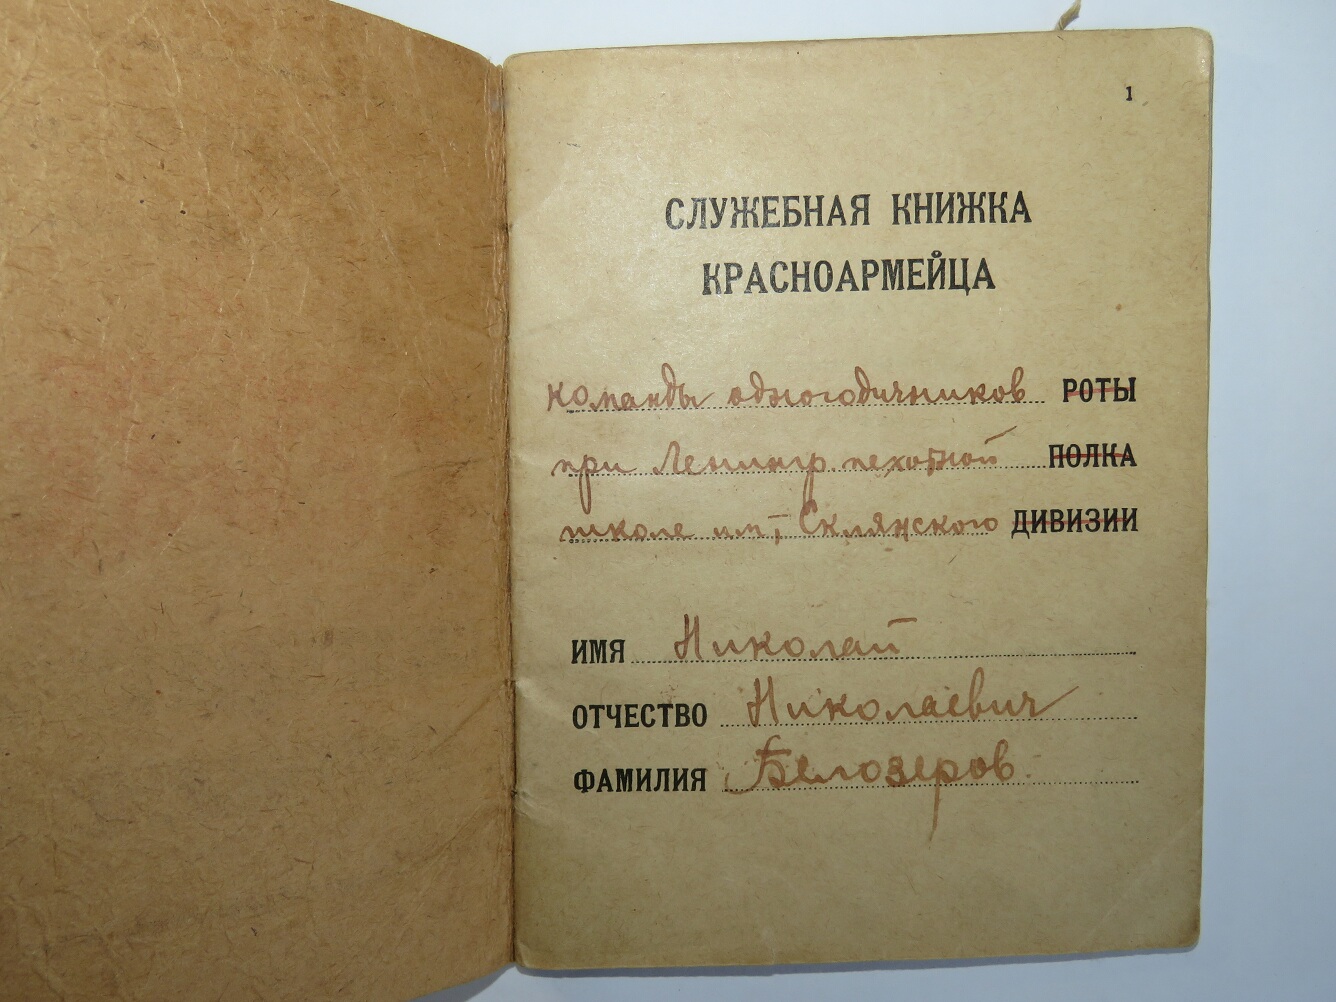 1
СЛУЖЕБНАЯ КНИЖКА
КРАСНОАРМЕЙЦА
команды одногодичников РОТЫ
при Ленингр. пехотной ПОЛКА
школе им. Склянского ДИВИЗИИ
ИМЯ Николай
ОТЧЕСТВО Николаевич
ФАМИЛИЯ Белозеров